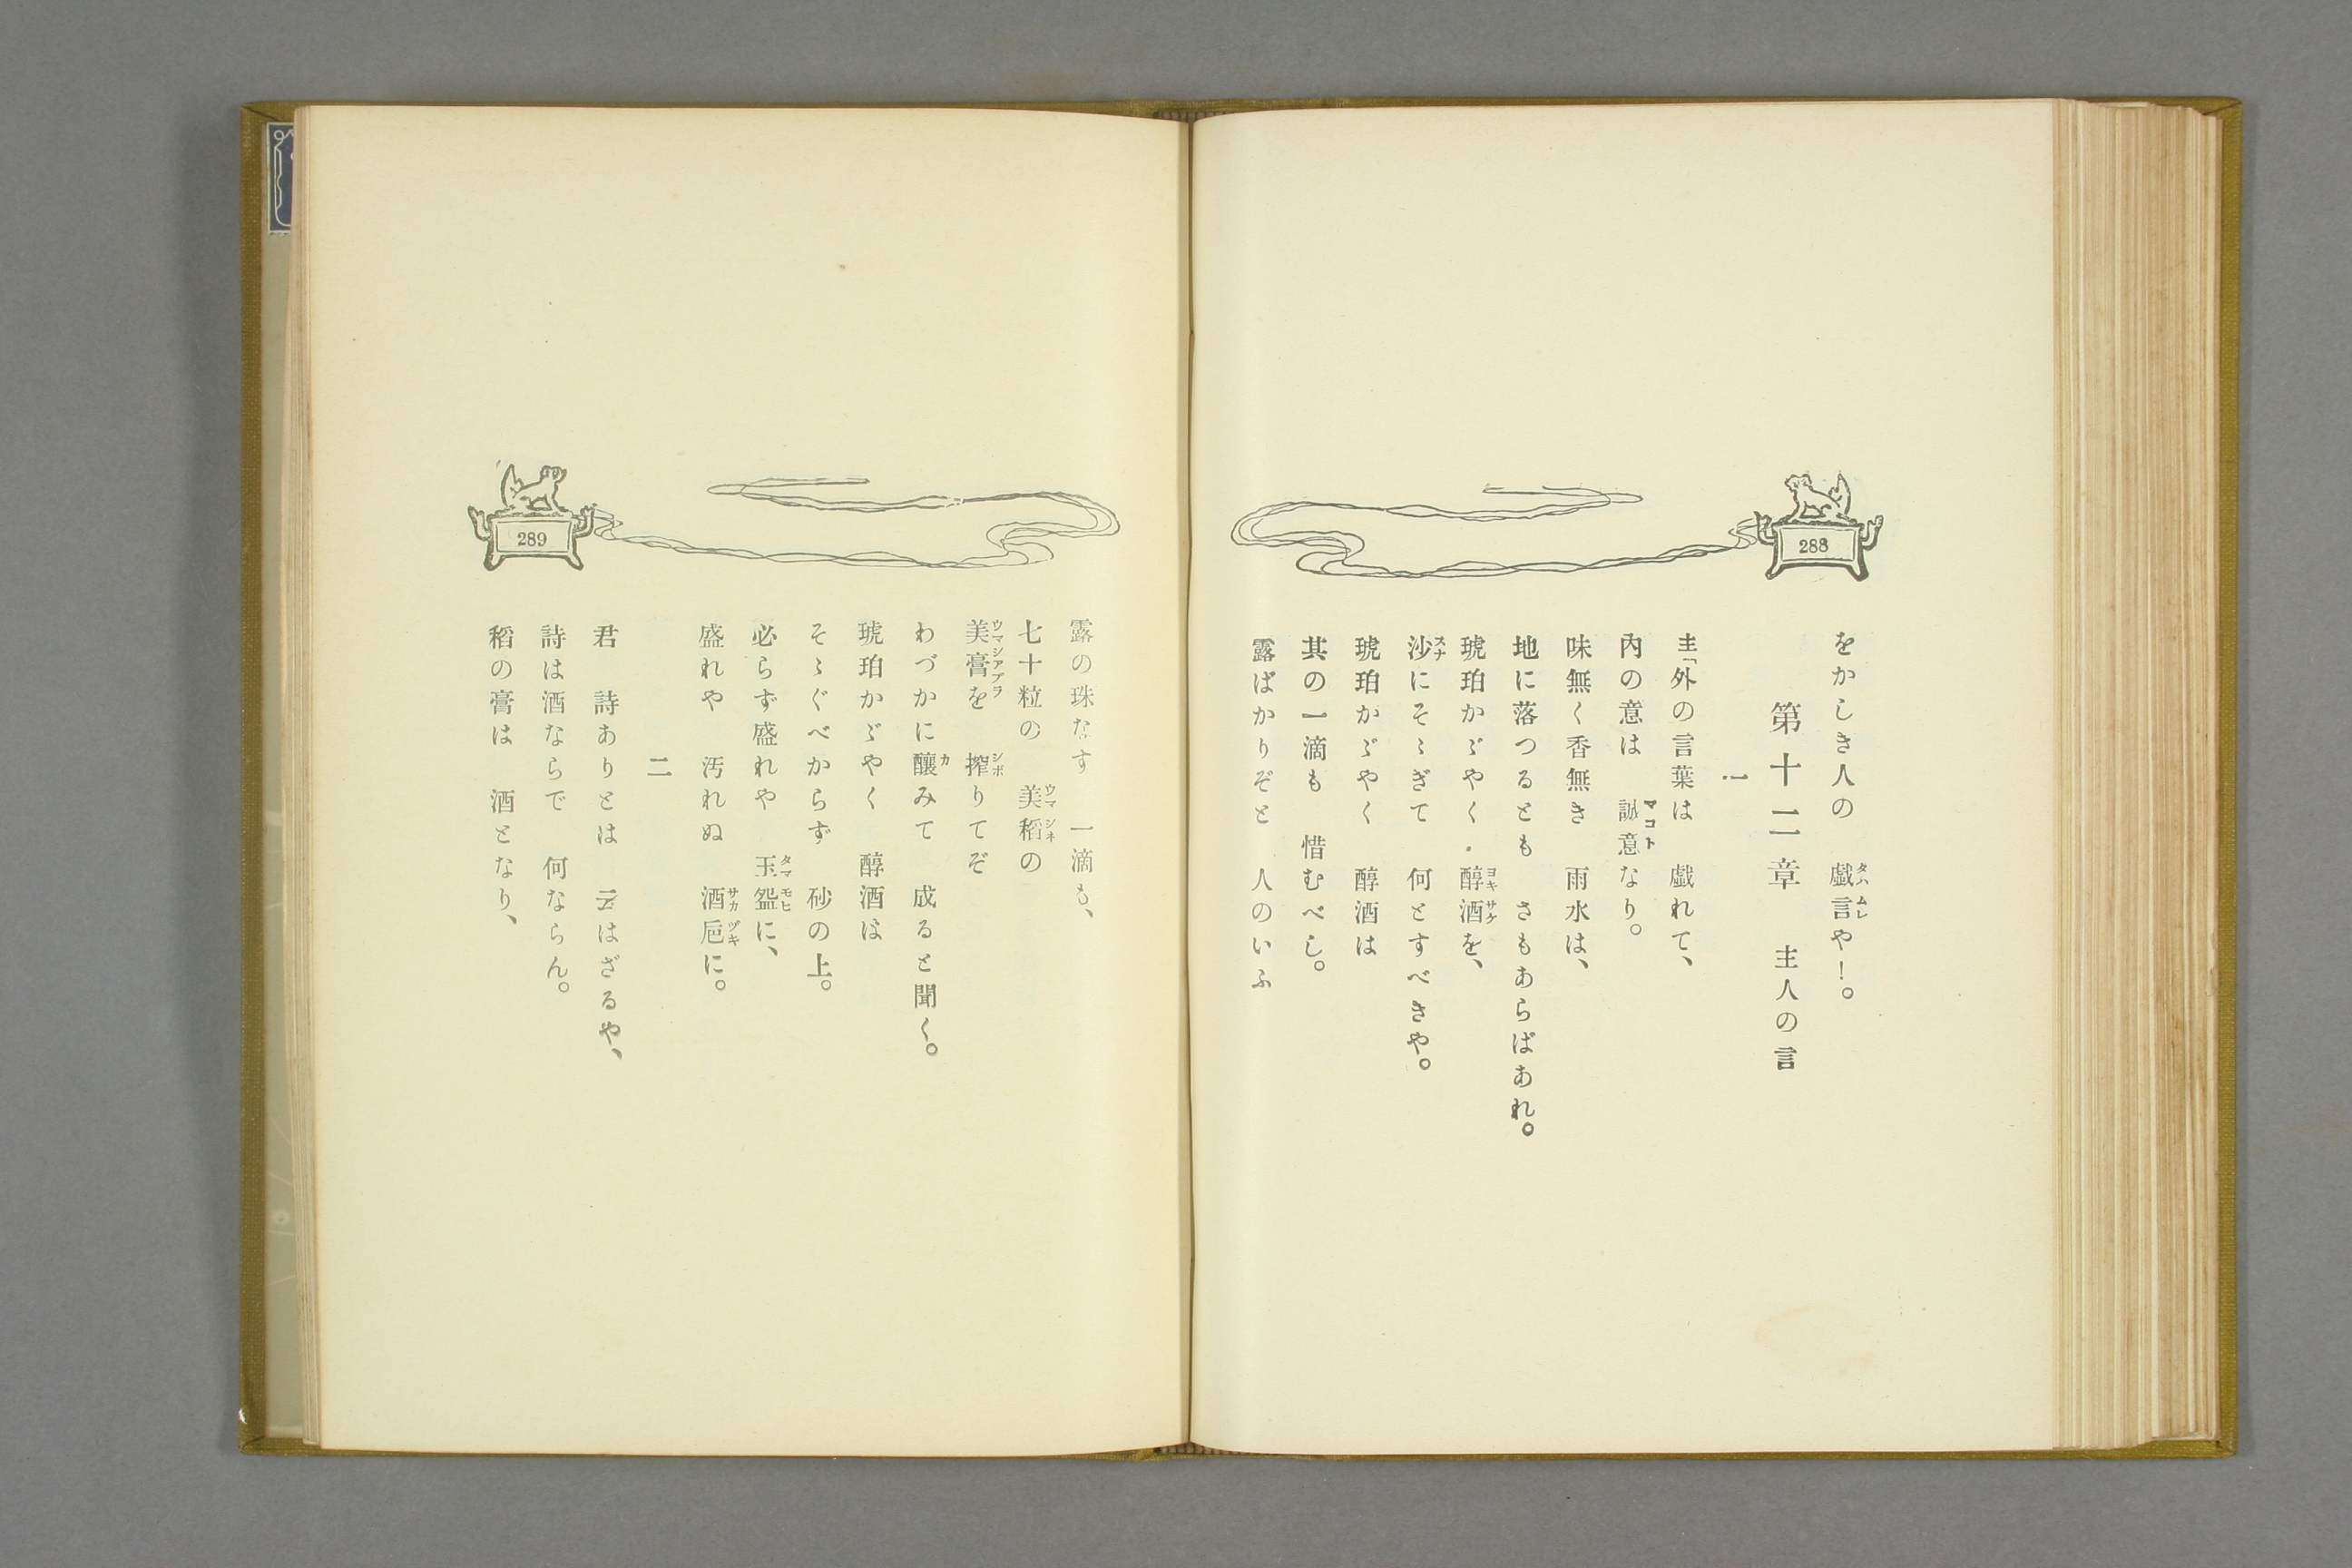 288
をかしき人の　戯言や！。
第十二章　主人の言
一
主「外の言葉は　戯れて、
内の意は　誠意なり。
味無く香無き　雨水は、
地に落つるとも　さもあらばあれ。
琥珀かゞやく　醇酒を、
沙にそゝぎて　何とすべきや。
琥珀かゞやく　醇酒は
其の一滴も　惜むべし。
露ばかりぞと　人のいふ
289
露の珠なす　一滴も、
七十粒の　美稻の
美膏を　搾りてぞ
わづかに釀みて　成ると聞く。
琥珀かゞやく　醇酒は
そゝぐべからず　砂の上。
必らず盛れや　玉盌に、
盛れや　汚れぬ　酒巵に。
二
君　詩ありとは　云はざるや、
詩は酒ならで　何ならん。
稻の膏は　酒となり、